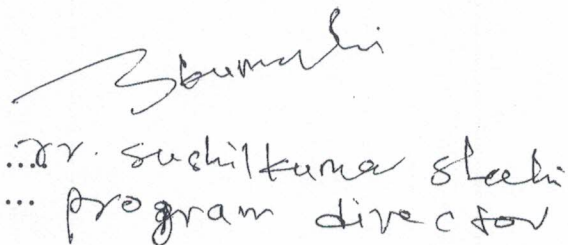 ....Dr. sushilkuma shahi
... program director